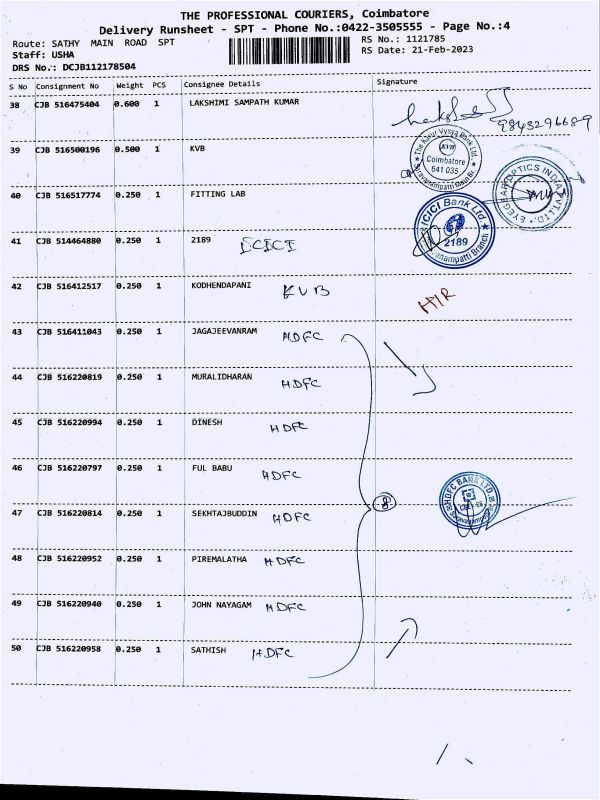 THE PROFESSIONAL COURIERS, Coimbatore
Delivery Runsheet - SPT - Phone No.:0422-3505555 - Page No.:4
Route: SATHY MAIN ROAD SPT RS No.: 1121785
Staff: USHA RS Date: 21-Feb-2023
DRS No.: DCJB112178504
S No Consignment No Weight PCS Consignee Details Signature
38 CJB 516475404 0.600 1 LAKSHIMI SAMPATH KUMAR
9843296689
39 CJB 516500196 0.500 1 KVB
The Karur Vysya Bank Ltd.
KVB
Coimbatore
641 035
40 CJB 516517774 0.250 1 FITTING LAB
EYEGEAR OPTICS INDIA PVT.LTD.
41 CJB 514464880 0.250 1 2189 ICICI
ICICI Bank Ltd
2189
42 CJB 516412517 0.250 1 KODHENDAPANI KVB
43 CJB 516411043 0.250 1 JAGAJEEVANRAM HDFC
44 CJB 516220819 0.250 1 MURALIDHARAN HDFC
45 CJB 516220994 0.250 1 DINESH HDFC
46 CJB 516220797 0.250 1 FUL BABU HDFC
8
HDFC BANK LTD.
47 CJB 516220814 0.250 1 SEKHTAJBUDDIN HDFC
48 CJB 516220952 0.250 1 PIREMALATHA HDFC
49 CJB 516220940 0.250 1 JOHN NAYAGAM HDFC
50 CJB 516220958 0.250 1 SATHISH HDFC